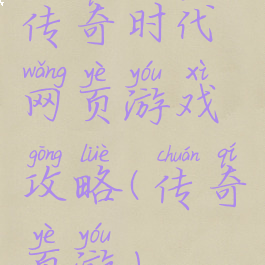 传奇时代
wǎng yè yóu xì
网页游戏
gōng lüè chuán qí
攻略(传奇
yè yóu
页游)